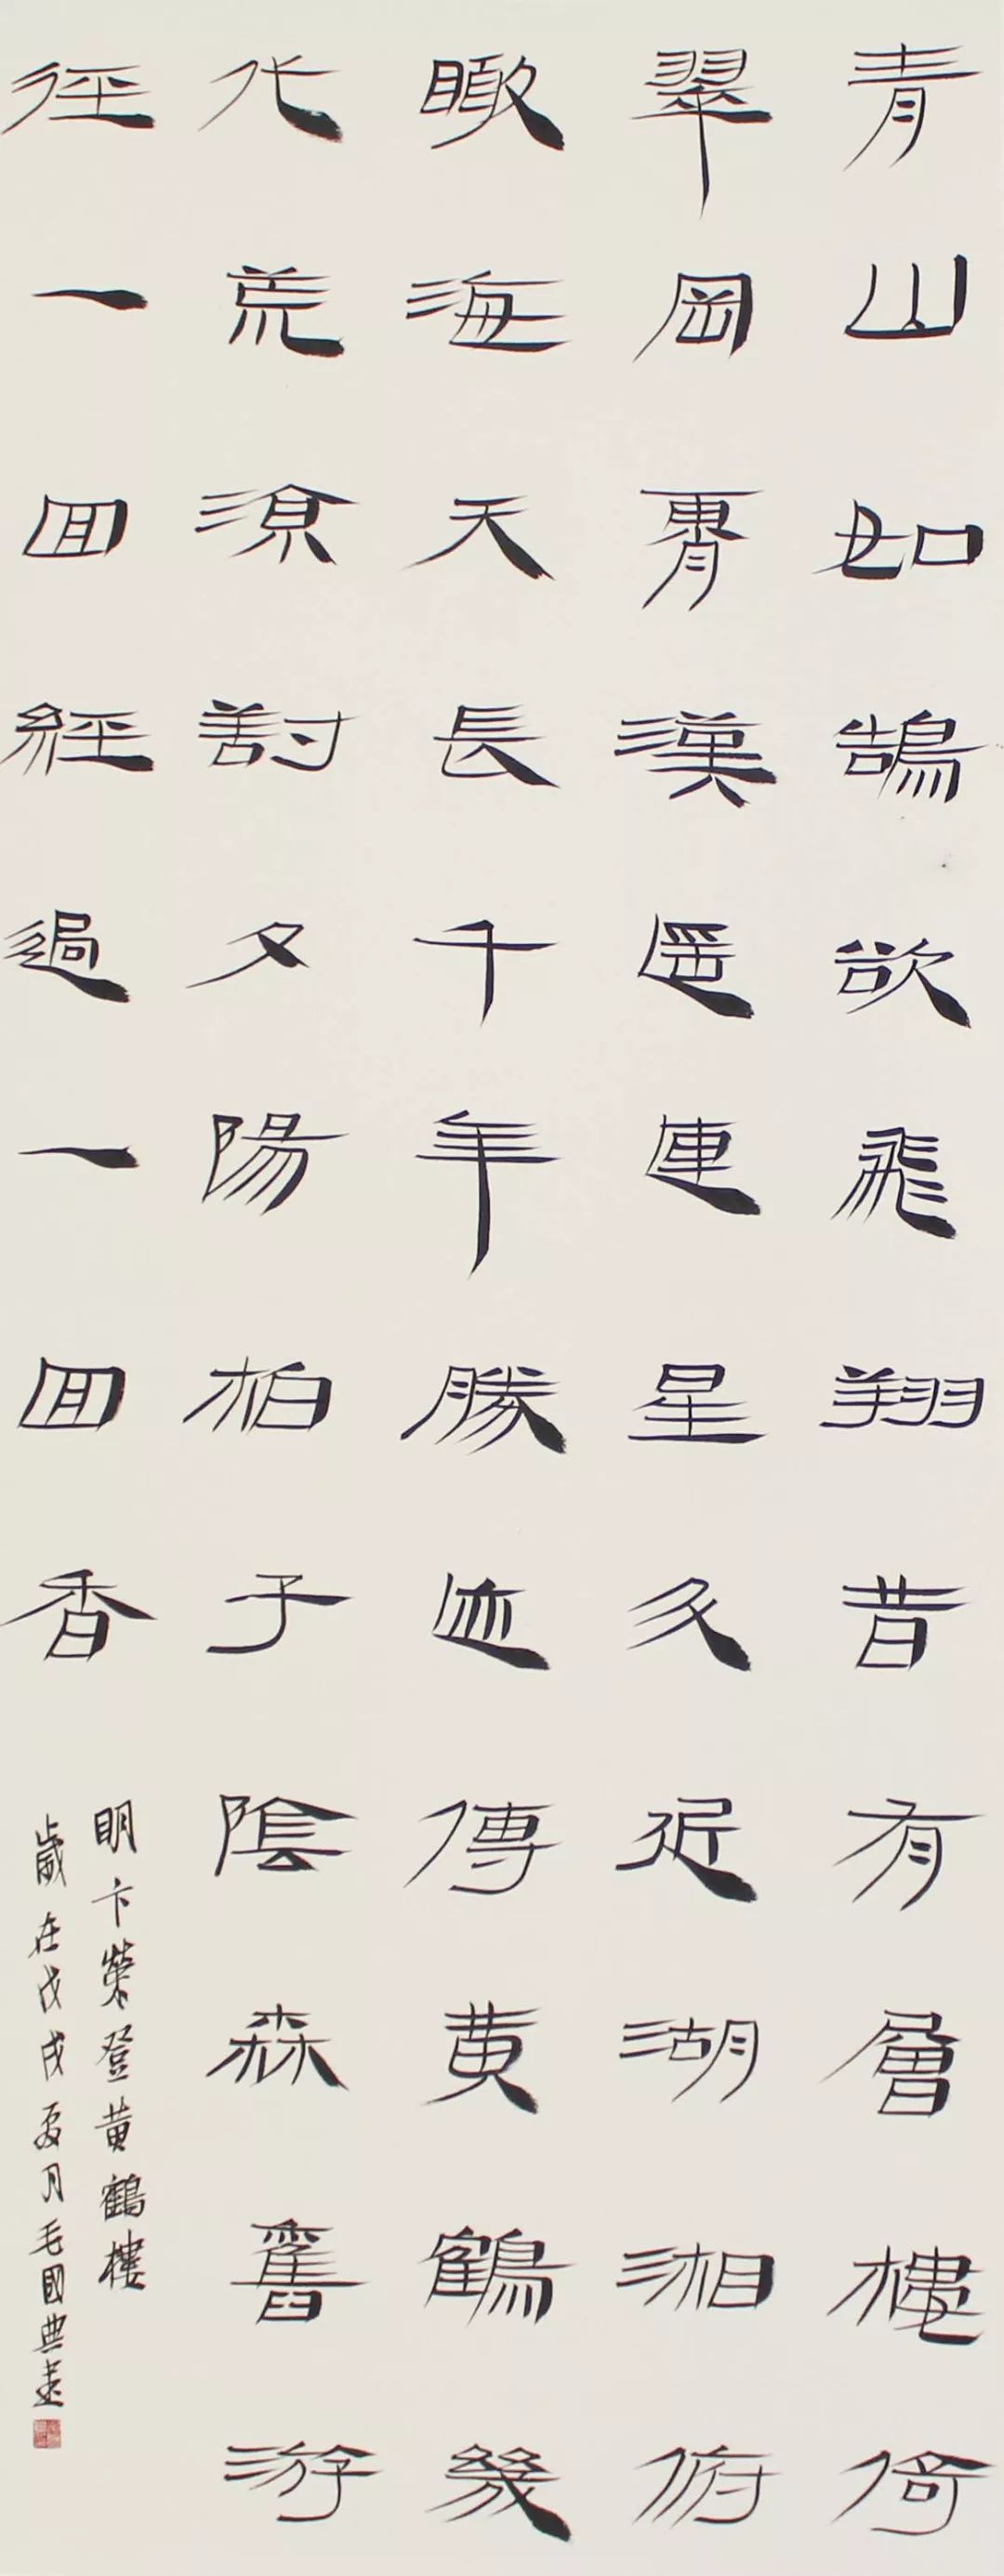 青山如鵠欲飛翔昔有層樓倚
翠岡霄漢連星斗近湖湘俯
瞰海天長千年勝迹傳黄鶴幾
代荒涼對夕陽柏子陰森舊游
徑一回經過一回香
明卞榮登黄鶴樓
歲在戊戌夏月毛國典書